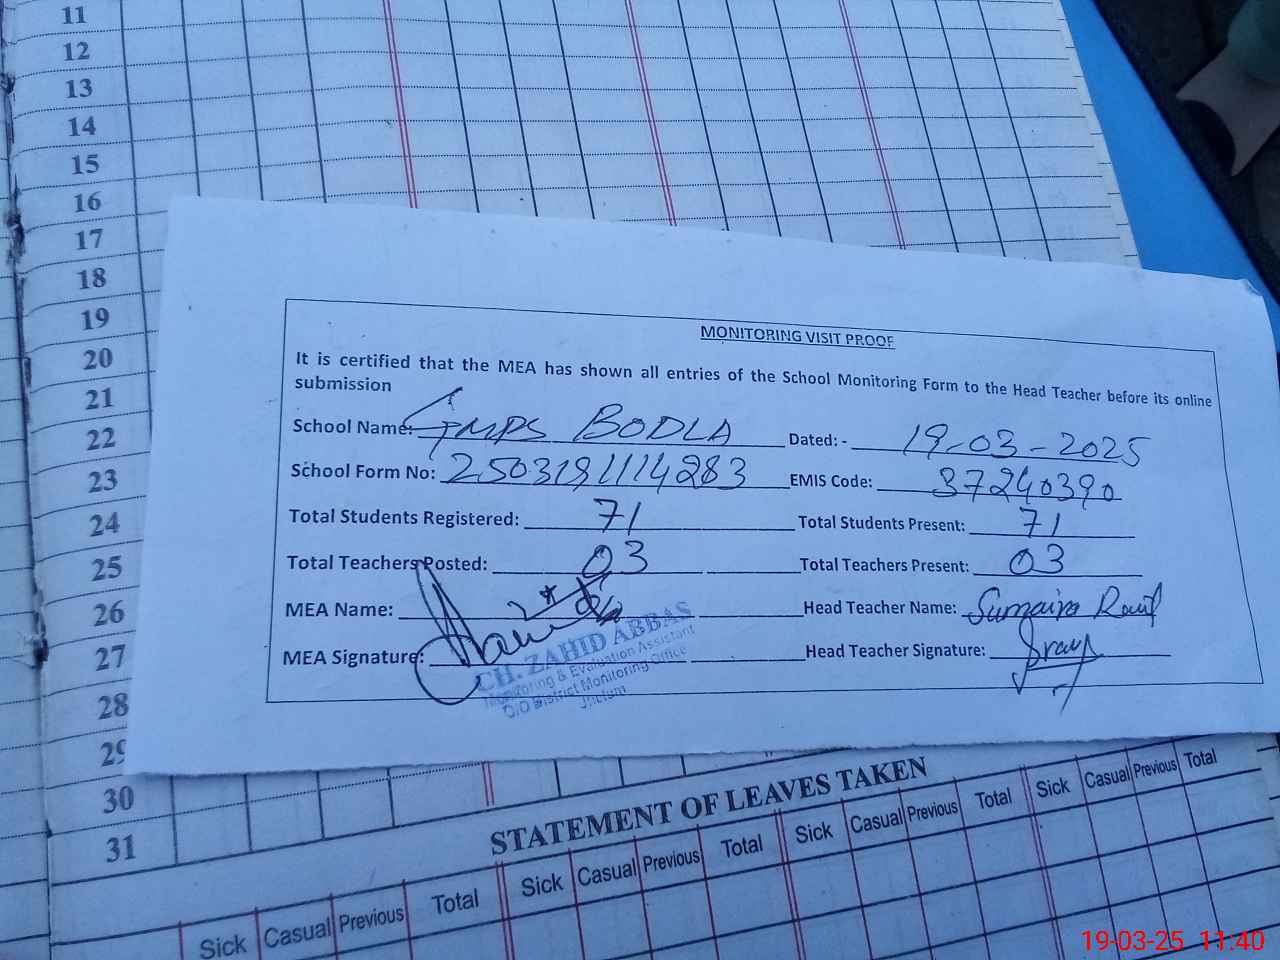 11
12
13
14
15
16
17
18
19
20
21
22
23
24
25
26
27
28
29
30
31
MONITORING VISIT PROOF
It is certified that the MEA has shown all entries of the School Monitoring Form to the Head Teacher before its online
submission
School Name: GMPS BODLA Dated: - 19-03-2025
School Form No: 2503191114283 EMIS Code: 37240390
Total Students Registered: 71 Total Students Present: 71
Total Teachers Posted: 03 Total Teachers Present: 03
MEA Name: Head Teacher Name: Sumaira Rauf
MEA Signature: Head Teacher Signature:
CH. ZAHID ABBAS
Monitoring & Evaluation Assistant
O/O District Monitoring Office
Jhelum
STATEMENT OF LEAVES TAKEN
Sick Casual Previous Total Sick Casual Previous Total Sick Casual Previous Total Sick Casual Previous Total
19-03-25 11:40